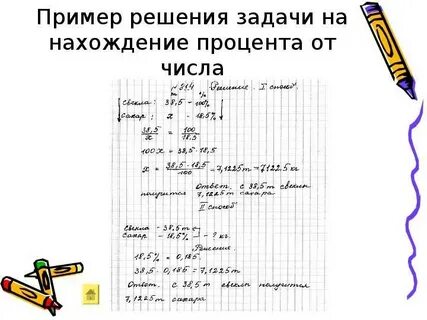 Пример решения задачи на
нахождение процента от
числа
№ 514 Решение. I способ.
т %
свекла: 38,5 - 100%
сахар: x - 18,5%
38,5/x = 100/18,5
100x = 38,5 · 18,5
x = 38,5 · 18,5/100 = 7,1225 т = 7122,5 кг
Ответ. с 38,5 т свеклы
получится 7,1225 т сахара
II способ
Свекла - 38,5 т
Сахар - 18,5% - ? кг.
Решение.
18,5% = 0,185
38,5 · 0,185 = 7,1225 т
Ответ. с 38,5 т свеклы получится
7,1225 т сахара